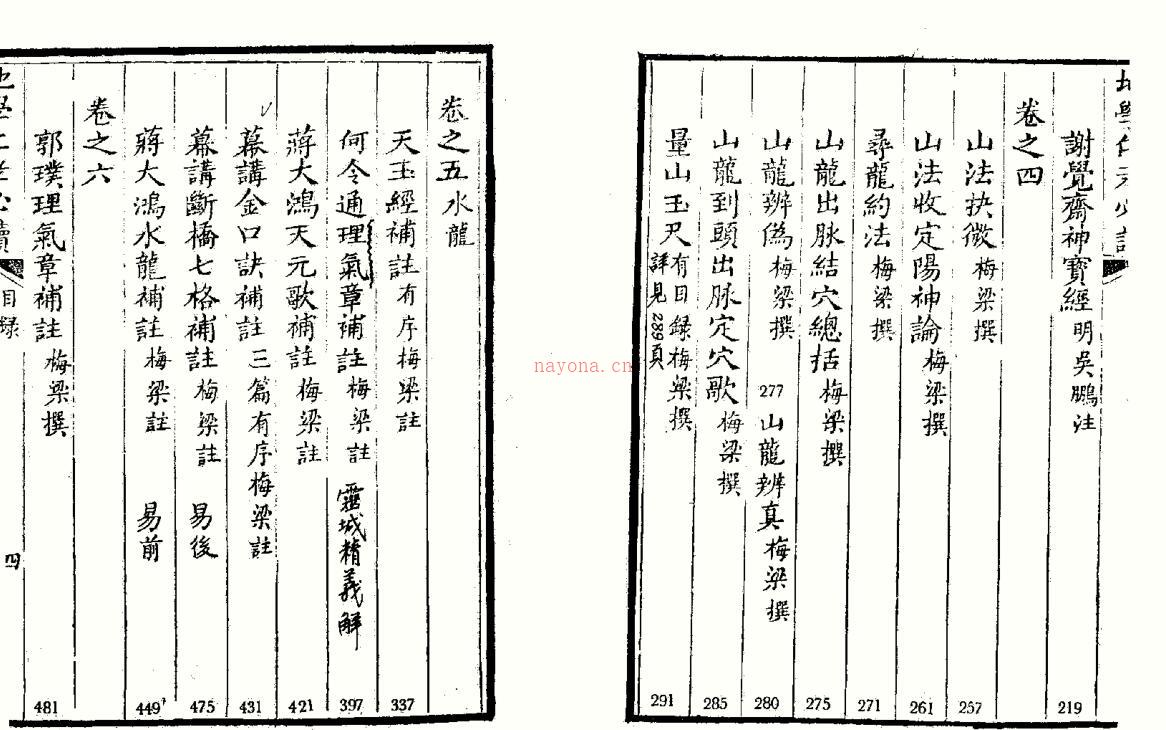 謝覺齋神寶經 明吳鵬注 219
卷之四
山法抉微 梅梁撰 257
山法收定陽神論 梅梁撰 261
尋龍約法 梅梁撰 271
山龍出脉結穴總括 梅梁撰 275
山龍辨偽 梅梁撰 277 山龍辨真 梅梁撰 280
山龍到頭出脉定穴歌 梅梁撰 285
量山玉尺 有目録梅梁撰 詳見289頁 291
卷之五 水龍
天玉經補註 有序梅梁註 337
何令通理氣章補註 梅梁註 靈城精義解 397
蔣大鴻天元歌補註 梅梁註 421
幕講金口訣補註 三篇有序梅梁註 431
幕講斷橋七格補註 梅梁註 易後 475
蔣大鴻水龍補註 梅梁註 易前 449
卷之六
郭璞理氣章補註 梅梁撰 481
目録
四
nayona.cn